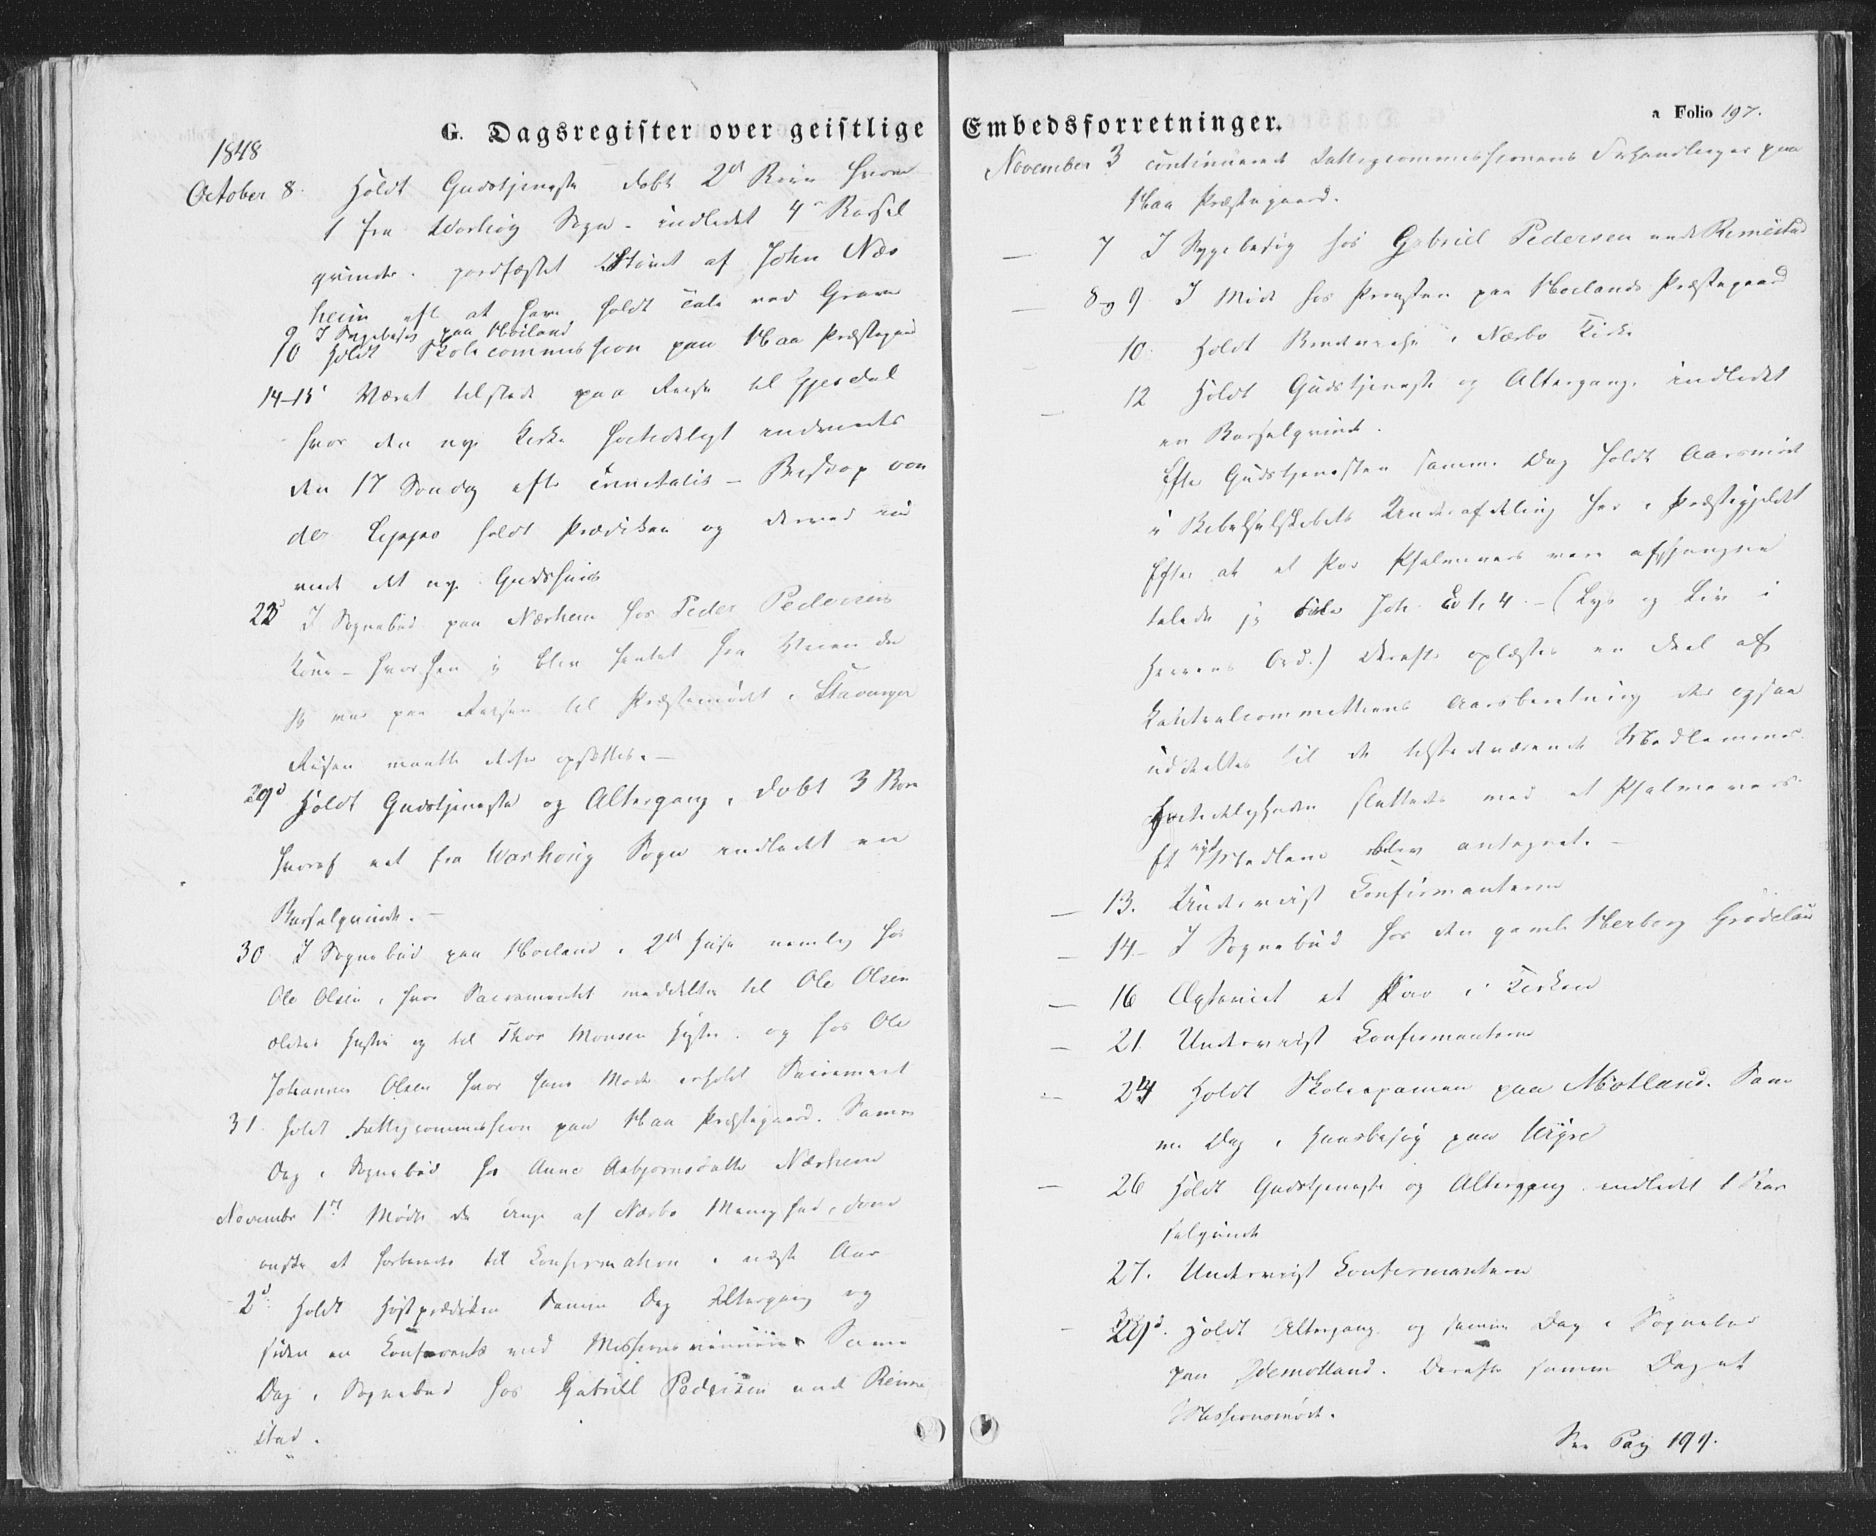 G. Dagsregister over geistlige Embedsforretninger.
a Folio 197.
1848
October 8. Holdt Gudstjeneste døbt 2de Børn hvoraf
1 fra Warhoug Sogn. indledet 4re Barsel
qvinder. jordfæstet Støvet af John Næs
heim eft. at have holdt Tale ved Graven
9 I Sygebesøg paa Høiland
10 Holdt Skolecommission paa Haa Præstegaard
14-15 Været tilstede paa Reise til Gjesdal
hvor den nye Kirke høitideligt indviedes
den 17 Søndag efter Trinitatis - Biskop von
der Lippe holdt Prædiken og derved ind
viede det nye Gudshuus
23 I Sognebud paa Nærheim hos Peder Pedersens
Kone - hvorhen jeg blev hentet fra Veien da
jeg var paa Reisen til Præstemødet i Stavanger
Reisen maatte derfor opsættes. -
29d Holdt Gudstjeneste og Altergang, døbt 3 Børn
hvoraf eet fra Warhoug Sogn indledet en
Barselqvinde. -
30 I Sognebud paa Høiland i 2de Huse nemlig hos
Ole Olsen, hvor Sacramentet meddeltes til Ole Olsen
ældres Hustru og til Thor Monsen Høiland. og hos Ole
Johannes Olsen hvor hans Moder erholdt Sacrament
31. holdt Fattigcommission paa Haa Præstegaard. Samme
Dag i Sognebud hos Anne Asbjørnsdatter Nærheim
November 1ste Mødte de Unge af Nærbø Menighed, som
ønske at forberedes til Confirmation i næste Aar
2d. Holdt Høstprædiken Samme Dag Altergang og
siden en Conferents med Missionsvennerne Samme
Dag i Sognebud hos Gabriel Pedersen nedre Reime
stad.
November 3 continuerede Fattigcommissionens Forhandlinger paa
Haa Præstegaard.
— 7 I Sygebesøg hos Gabriel Pedersen nedre Remestad
— 8 og 9. I Møde hos Provsten paa Høilands Præstegaard
10. Holdt i Nærbø Kirke
— 12 Holdt Gudstjeneste og Altergang. indledet
en Barselqvinde.
Efter Gudstjenesten samme Dag holdt Aarsmøde
i Bibelselskabets Underafdeling her i Præstegjeldet
Efter at et Par Psalmevers vare afsjungne
talede jeg over Joh. Ev. 1, 4. - (Lys og Liv i
Herrens Ord.) Derefter oplæstes en Deel af
Centralcommitteens Aarsberetning der ogsaa
uddeeltes til de tilstedeværende Medlemmer
Høitideligheden sluttedes med et Psalmevers.
Et nyt Medlem blev antegnet. -
— 13. Underviist Confirmanterne
— 14- I Sognebud hos den gamle Herborg Grødeland
— 16 Ægteviet et Par i Kirken
— 21. Underviist Confirmanterne
— 24 Holdt Skoleexamen paa Motland. Sam
me Dag i Huusbesøg paa Vigre
— 26 Holdt Gudstjeneste og Altergang indledet 1 Bar
selqvinde
27. Underviist Confirmanterne
— 29d. Holdt Altergang. og samme Dag i Sognebud
paa Odemotland. Derefter samme Dag et
Missionsmøde.
See Pag 199.